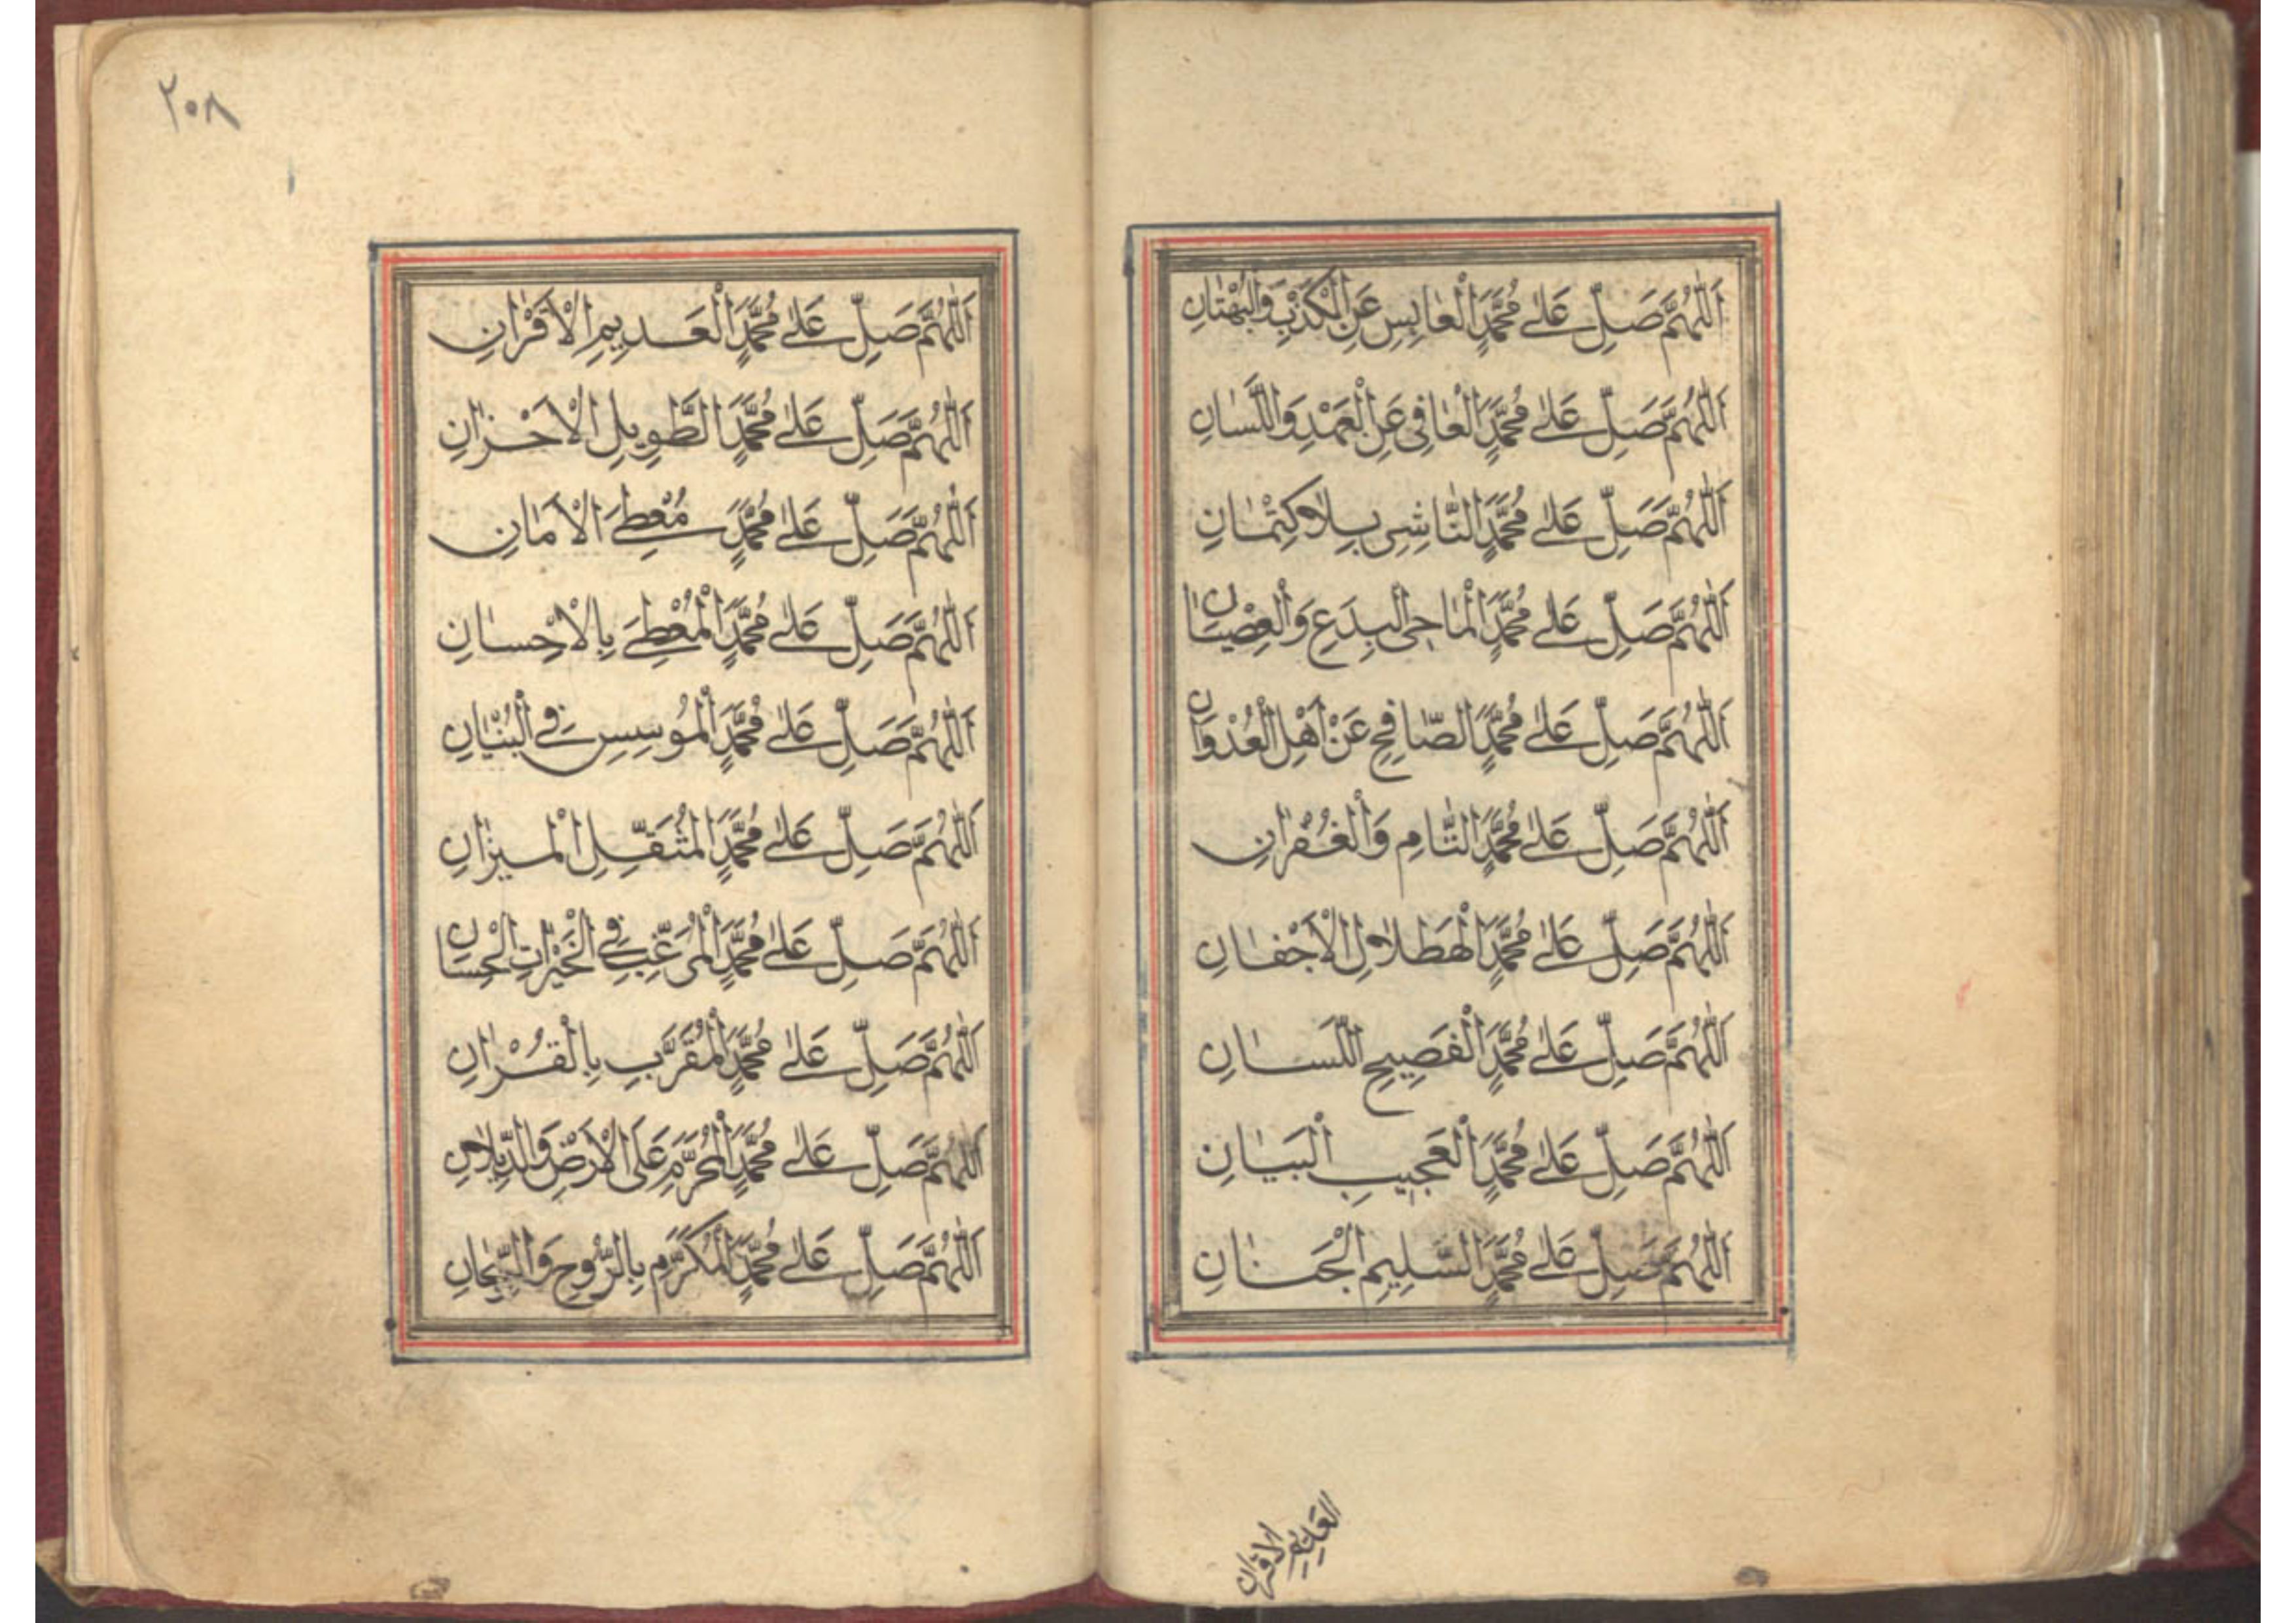 اَللّٰهُمَّ صَلِّ عَلٰى مُحَمَّدٍ الْعَابِسِ عَنِ الْكَذْبِ وَالْبُهْتَانِ
اَللّٰهُمَّ صَلِّ عَلٰى مُحَمَّدٍ الْعَافِى عَنِ الْعَمْدِ وَاللَّسَانِ
اَللّٰهُمَّ صَلِّ عَلٰى مُحَمَّدٍ النَّاشِى بِلَا كِتْمَانٍ
اَللّٰهُمَّ صَلِّ عَلٰى مُحَمَّدٍ الْمَاحِى الْبِدَعِ وَالْعِصْيَانِ
اَللّٰهُمَّ صَلِّ عَلٰى مُحَمَّدٍ الصَّافِحِ عَنْ اَهْلِ الْعُدْوَانِ
اَللّٰهُمَّ صَلِّ عَلٰى مُحَمَّدٍ التَّامِ وَالْغُفْرَانِ
اَللّٰهُمَّ صَلِّ عَلٰى مُحَمَّدٍ الْهَطَلَانِ الْاَجْفَانِ
اَللّٰهُمَّ صَلِّ عَلٰى مُحَمَّدٍ الْفَصِيحِ اللِّسَانِ
اَللّٰهُمَّ صَلِّ عَلٰى مُحَمَّدٍ الْعَجِيبِ الْبَيَانِ
اَللّٰهُمَّ صَلِّ عَلٰى مُحَمَّدٍ السَّلِيمِ الْجَنَانِ
العَدِيمِ الاقران
٢٠٨
اَللّٰهُمَّ صَلِّ عَلٰى مُحَمَّدٍ الْعَدِيمِ الْاَقْرَانِ
اَللّٰهُمَّ صَلِّ عَلٰى مُحَمَّدٍ الطَّوِيلِ الْاَحْزَانِ
اَللّٰهُمَّ صَلِّ عَلٰى مُحَمَّدٍ مُعْطِى الْاَمَانِ
اَللّٰهُمَّ صَلِّ عَلٰى مُحَمَّدٍ الْمُعْطِى بِالْاِحْسَانِ
اَللّٰهُمَّ صَلِّ عَلٰى مُحَمَّدٍ الْمُوسِسِ فِى الْبُنْيَانِ
اَللّٰهُمَّ صَلِّ عَلٰى مُحَمَّدٍ الْمُثَقِّلِ الْمِيزَانِ
اَللّٰهُمَّ صَلِّ عَلٰى مُحَمَّدٍ الْمُرَغِّبِ فِى الْخَيْرَاتِ الْحِسَانِ
اَللّٰهُمَّ صَلِّ عَلٰى مُحَمَّدٍ الْمُقَرَّبِ بِالْقُرْاٰنِ
اَللّٰهُمَّ صَلِّ عَلٰى مُحَمَّدٍ الْمُحَرَّمِ عَلَى الْاَرْضِ
اَللّٰهُمَّ صَلِّ عَلٰى مُحَمَّدٍ الْمُكَرَّمِ بِالرُّوحِ